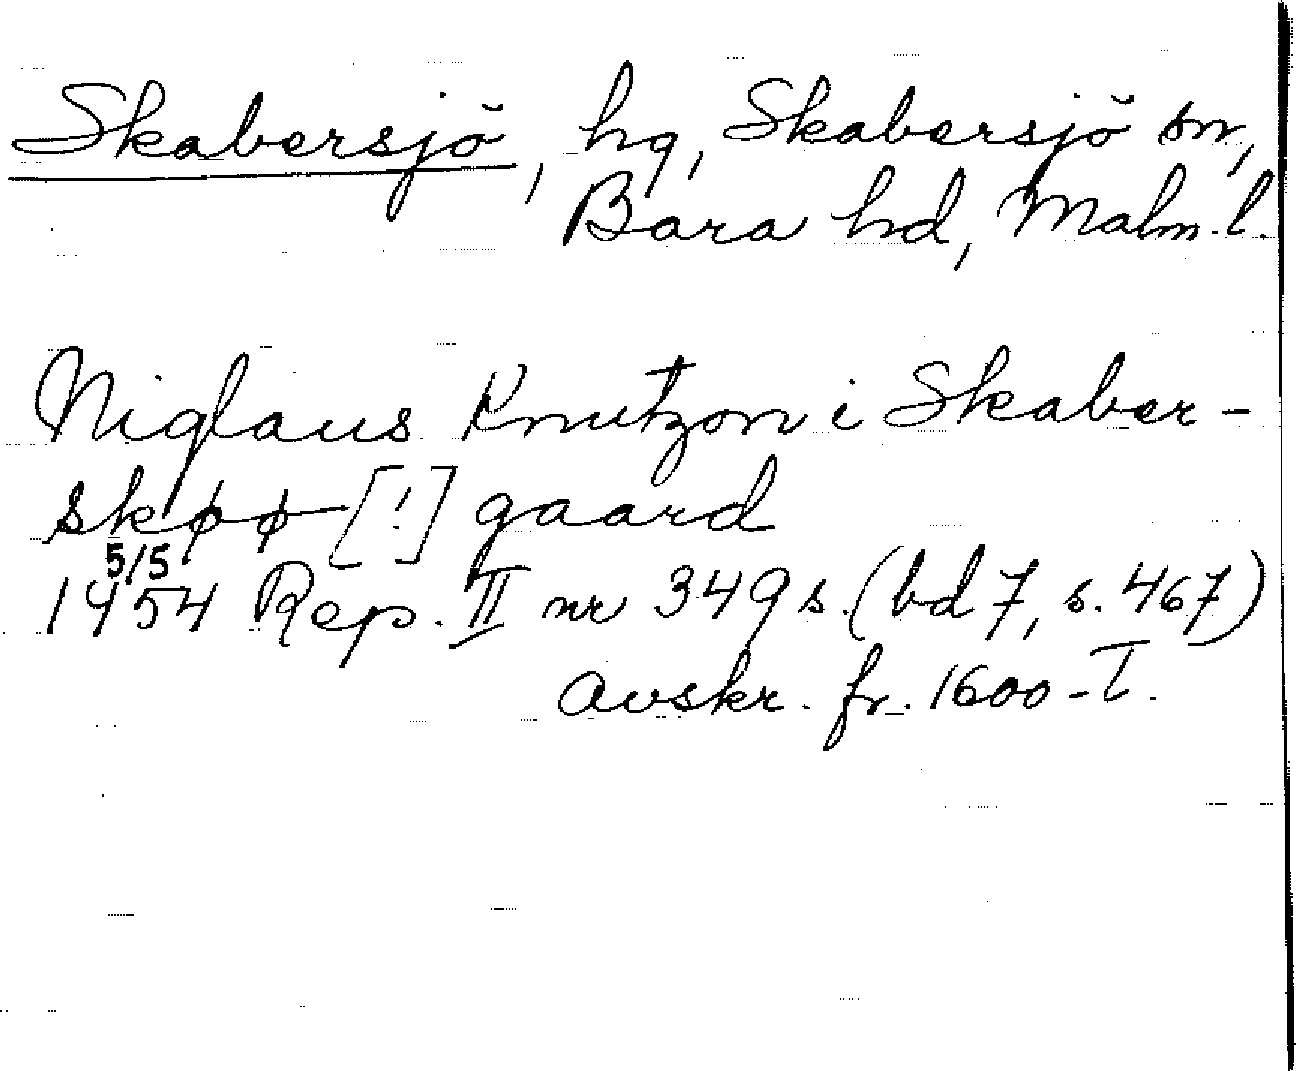 Skabersjö, hg, Skabersjö sn,
Bara hd, Malm. l.
Niglaus Knutzon i Skaber-
skøø [!] gaard
5/5
1454 Rep. II nr 349 s. (bd 7, s. 467)
Avskr. fr. 1600-T.